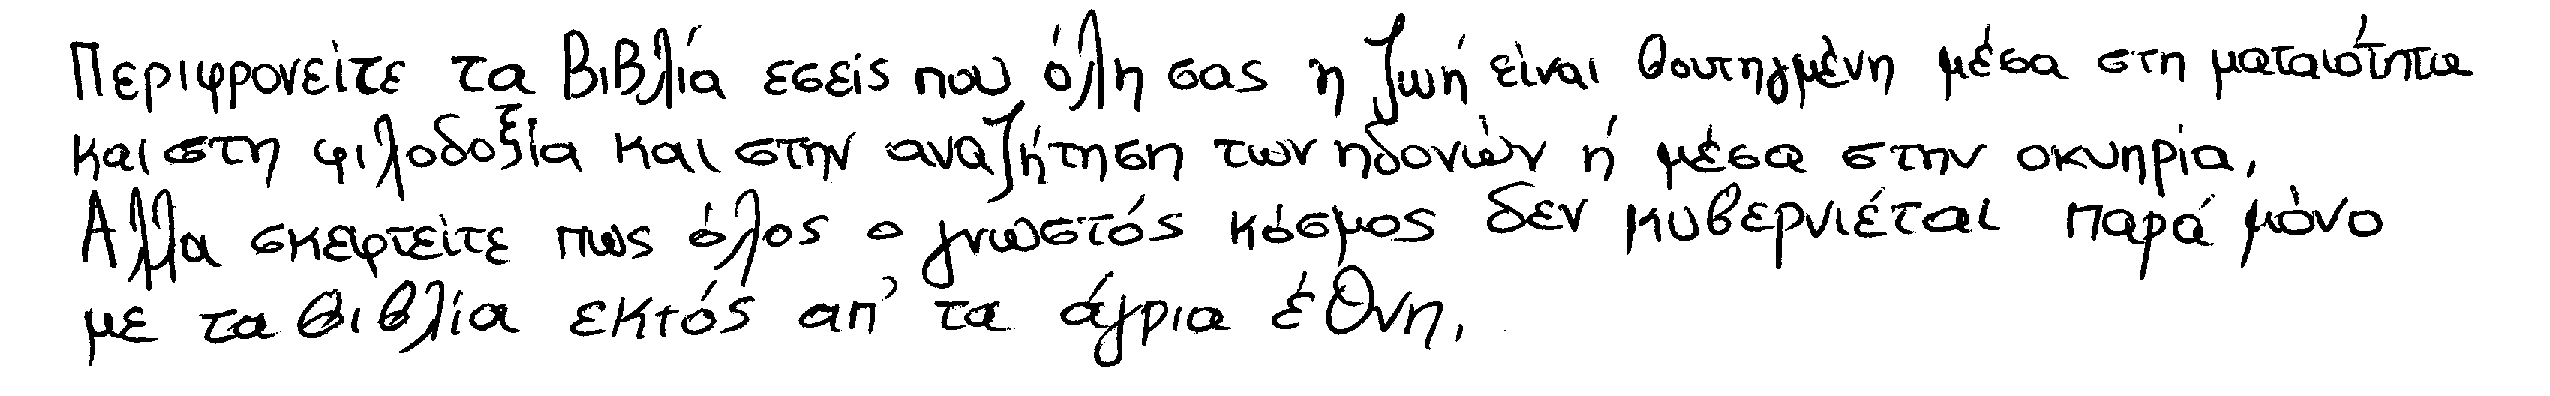 Περιφρονείτε τα Βιβλία εσείς που όλη σας η ζωή είναι βουτηγμένη μέσα στη ματαιότητα
και στη φιλοδοξία και στην αναζήτηση των ηδονών ή μέσα στην οκνηρία,
Αλλα σκεφτείτε πως όλος ο γνωστός κόσμος δεν κυβερνιέται παρά μόνο
με τα βιβλία εκτός απ' τα άγρια έθνη,